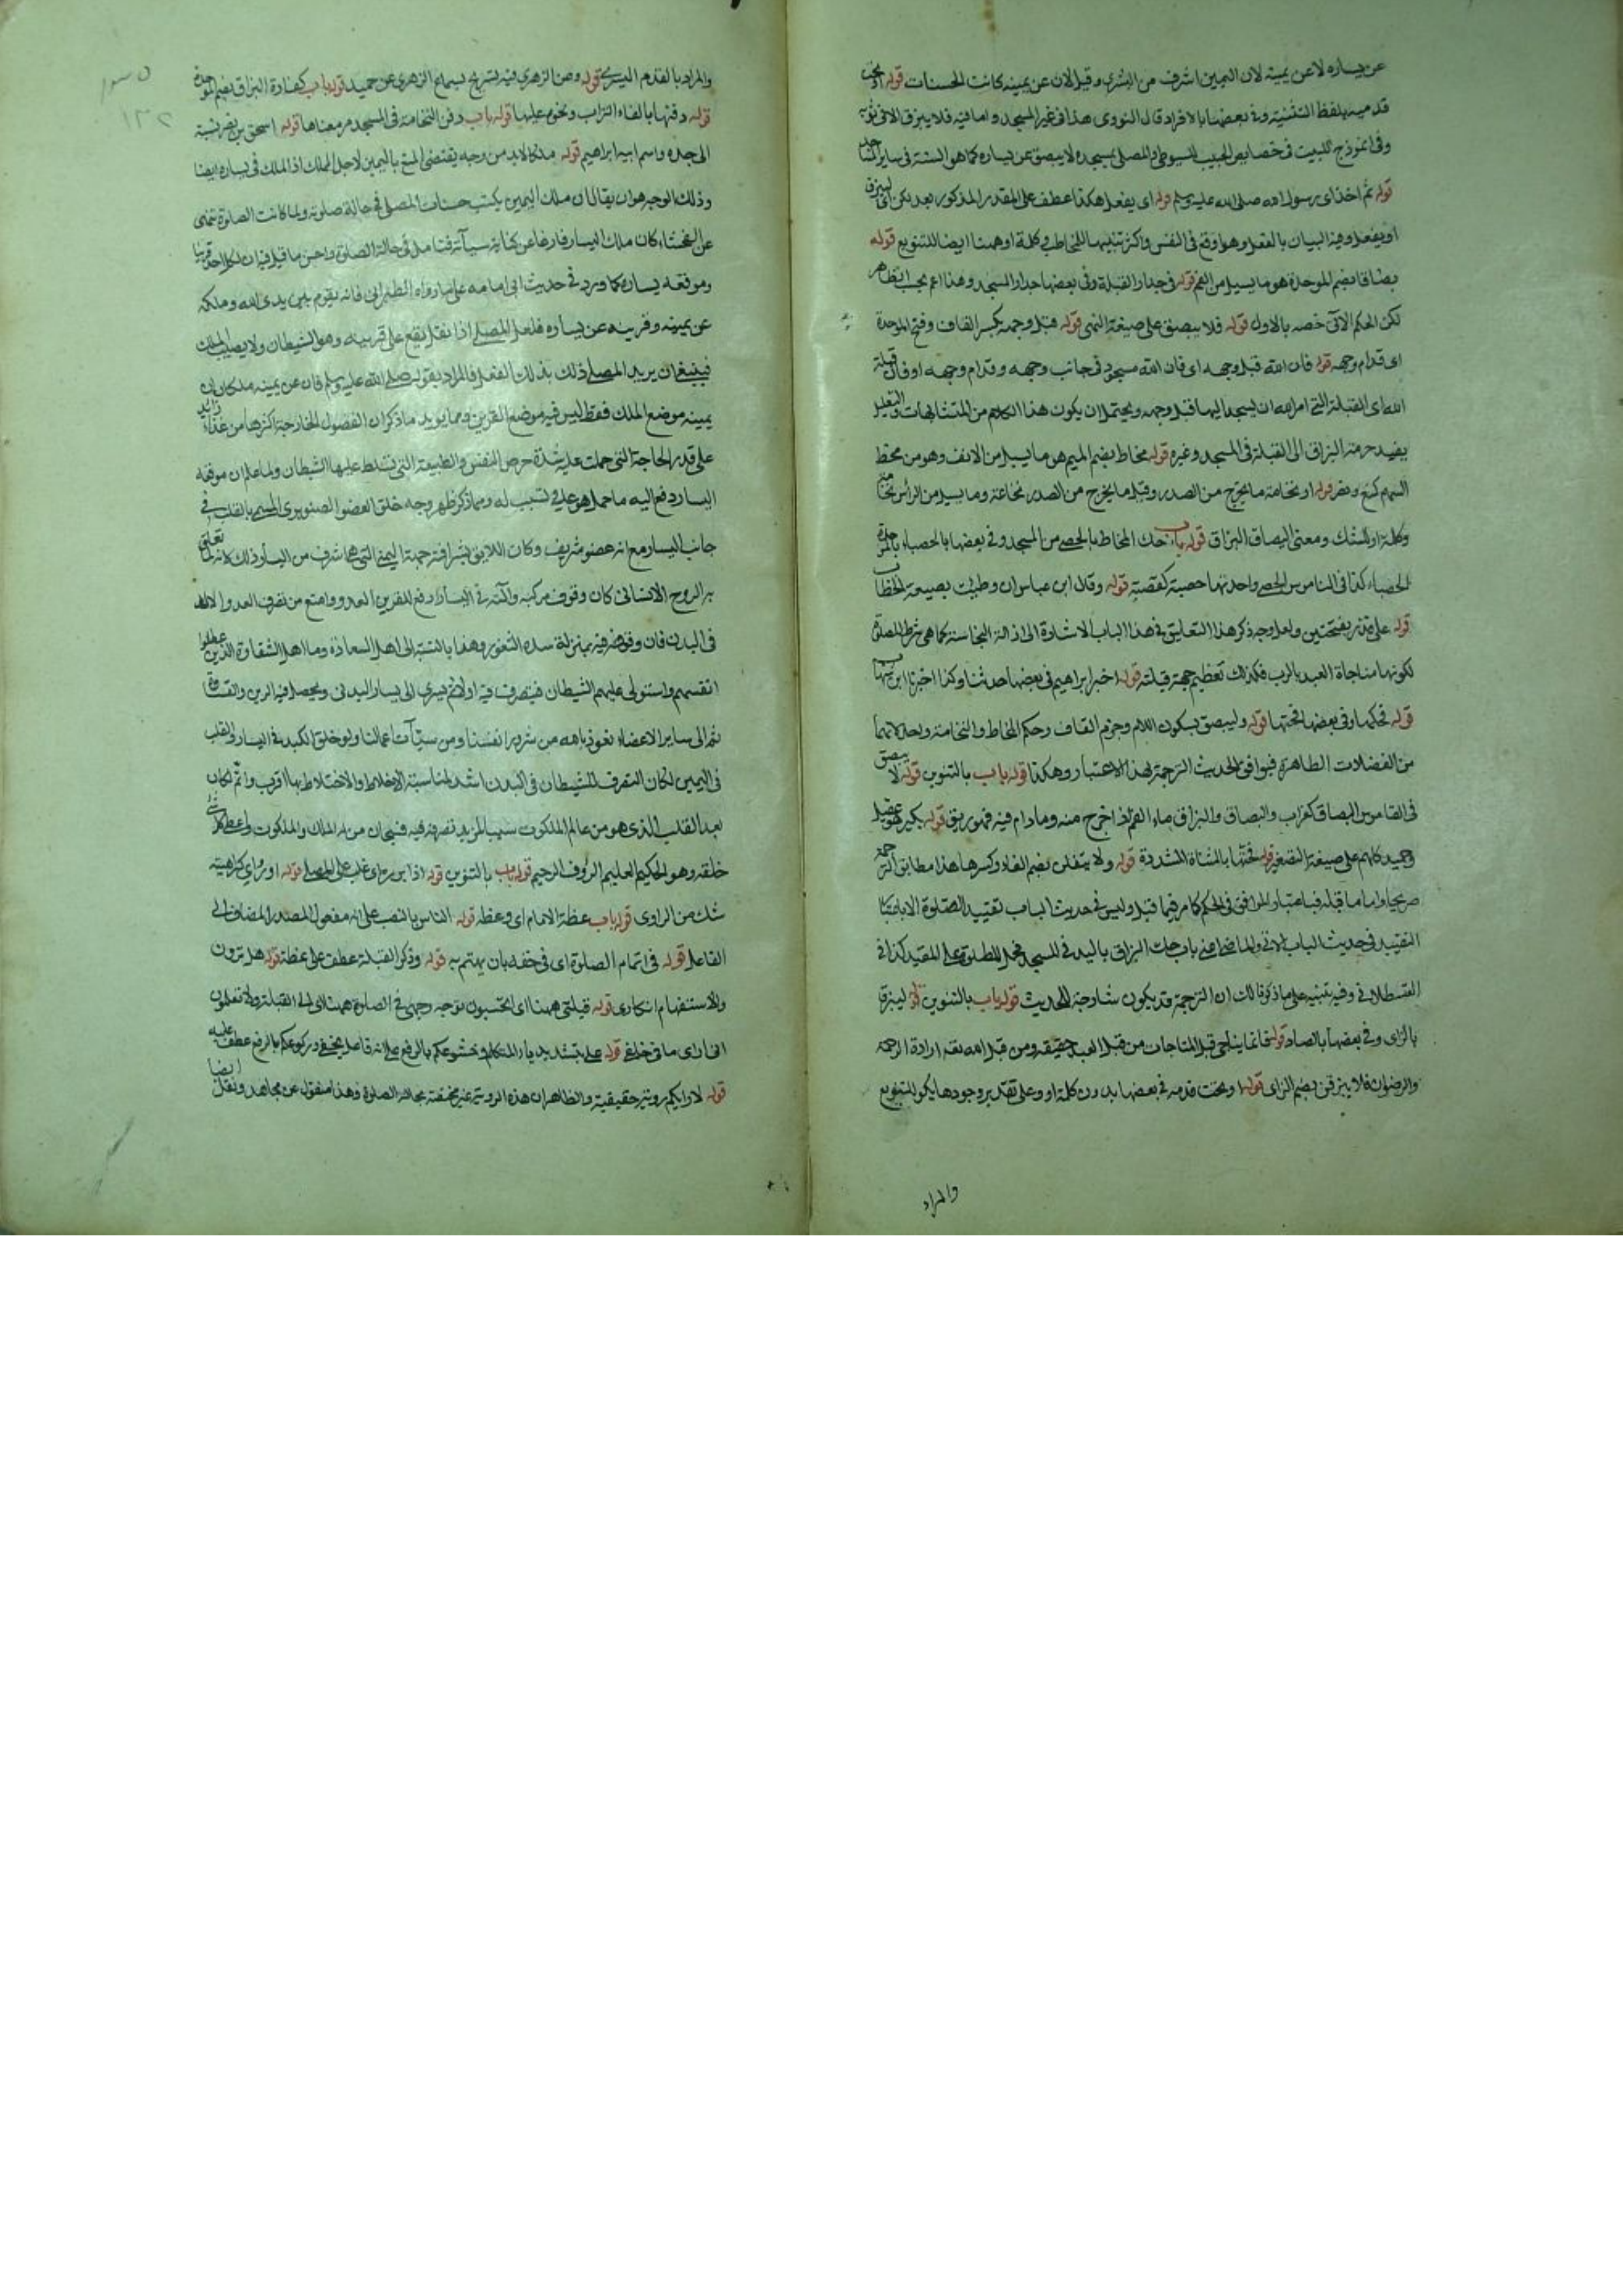 عن يساره لا عن يمينه لان اليمين اشرف من اليسرى وقيل لان عن يمينه كانت الحسنات قوله او تحت
قدميه بلفظ التثنية وفي بعضها بالافراد قال النووي هذا في غير المسجد واما فيه فلا يبزق الا في ثوبه
وفي انموذج اللبيب في خصايص الحبيب للسيوطي والمصلي بمسجده لا يبصق عن يساره كما هو السنة في ساير المساجد
قوله ثم اخذ اى رسول الله صلى الله عليه وسلم قوله اى يفعل هكذا عطف على المقدر المذكور بعد لكن اى ليبزق
او يفعل وفيه البيان بالفعل وهو اوقع في النفس واكثر تنبيها للمخاطب وكلمة او ههنا ايضا للتنويع قوله
بصاقا بضم الموحدة هو ما يسيل من الفم قوله في جدار القبلة وفي بعضها جدار المسجد وهذا اعم بحسب الظاهر
لكن الحكم الاتى خصه بالاول قوله فلا يبصق على صيغة النهى قوله قبل وجهه بكسر القاف وفتح الموحدة
اى قدام وجهه قوله فان الله قبل وجهه اى فان الله مسجود في جانب وجهه وقدام وجهه او فان قبلة
الله اى القبلة التى امر الله ان يسجد اليها قبل وجهه ويحتمل ان يكون هذا الكلام من المتشابهات والتعليل
يفيد حرمة البزاق الى القبلة في المسجد وغيره قوله مخاطا بضم الميم هو ما يسيل من الانف وهو من مخط
السهم كمنع ونصر قوله او نخامة ما يخرج من الصدر وقيل ما يخرج من الصدر نخاعة وما يسيل من الرأس نخامة
وكلمة او للشك ومعنى البصاق البزاق قوله باب حك المخاط بالحصى من المسجد وفي بعضها بالحصباء بالمد
الحصباء كذا في القاموس الحصى واحدتها حصبة كقصبة قوله وقال ابن عباس ان وطئت بصيغة الخطاب
قوله على قذر بفتحتين ولعل وجه ذكر هذا التعليق في هذا الباب الاشارة الى ازالة النجاسة كما هي شرط للصلوة
لكونها مناجاة العبد بالرب فكذلك تعظيم جهة قبلته قوله اخبر ابراهيم في بعضها حدثنا وكذا اخبرنا ابن شهاب
قوله فحكها وفي بعضها فحتها قوله وليبصق بسكون اللام وجزم القاف وحكم المخاط والنخامة واحد لانهما
من الفضلات الطاهرة فيوافق الحديث الترجمة بهذا الاعتبار وهكذا قوله باب بالتنوين قوله لا يبصق
في القاموس البصاق كغراب والبصاق والبزاق ماء الفم اذا خرج منه وما دام فيه فهو ريق قوله بكير عقيل
وحميد كلهم على صيغة التصغير قوله فحتها بالمثناة المشددة قوله ولا يتفلن بضم الفاء وكسرها هذا مطابق الترجمة
صريحا واما ما قبله فباعتبار الموافق في الحكم كما مر فيما قبل وليس في حديث الباب تقييد الصلوة الا باعتبار
التقييد في حديث الباب الاتي والماضي اعني باب حك البزاق باليد في المسجد فحمل المطلق على المقيد كذا في
القسطلاني وفيه تنبيه على ما ذكرنا لك ان الترجمة قد يكون شارحة للحديث قوله باب بالتنوين قوله ليبزق
بالزاى وفي بعضها بالصاد قوله فانما يناجى قيل المناجات من قبل العبد حقيقة ومن قبل الله تعالى ارادة الرحمة
والرضوان قوله لا يبزقن بضم الزاى قوله او تحت قدمه في بعضها بدون كلمة او وعلى تقدير وجودها يكون للتنويع
والمراد
والمراد بالقدم اليسرى قوله وعن الزهري فيه تصريح بسماع الزهري عن حميد قوله باب كفارة البزاق بضم الموحدة
قوله دفنها بالقاء التراب ونحوه عليها قوله باب دفن النخامة في المسجد مر معناها قوله اسحق بن نصر نسبة
الى جده واسم ابيه ابراهيم قوله ملكا لابد من وجه يقتضى المنع باليمين لاجل الملك اذ الملك في يساره ايضا
وذلك الوجه هو ان يقال ان ملك اليمين يكتب حسنات المصلى في حالة صلوته ولما كانت الصلوة تنهى
عن الفحشاء كان ملك اليسار فارغا عن كتابة سيآته فتامل في حالة الصلوة واحسن ما قيل فيه ان لكل احد قرينا
وموقعه يساره كما ورد في حديث ابى امامه على ما رواه الطبراني فانه يقوم بين يدى الله وملكه
عن يمينه وقرينه عن يساره فلعل المصلي اذا تفل يقع على قرينه وهو الشيطان ولا يصيب الملك
فينبغى ان يريد المصلي ذلك بذلك الفعل فالمراد بقوله صلى الله عليه وسلم فان عن يمينه ملكا ان
يمينه موضع الملك فقط ليس فيه موضع القرين ومما يويد ما ذكر ان الفضول الخارجة اكثرها من غذاء زائد
على قدر الحاجة التى حملت عليه شدة حرص النفس والطبيعة التى تسلط عليها الشيطان ولما علم ان موقعه
اليسار دفع اليه ما حمل هو على تسبب له ومما ذكر ظهر وجه خلق العضو الصنوبري المسمى بالقلب في
جانب اليسار مع انه عضو شريف وكان اللايق بشرافته جهة اليمنى التى هى اشرف من اليسار وذلك لانه لما تعلق
به الروح الانسانى كان وقوف مركبه والته في اليسار ادفع للقرين العدو وامنع من تصرف العدو الالد
في البدن فان وقوفه فيه بمنزلة سد الثغور وهذا بالنسبة الى اهل السعادة وما اهل الشقاوة الذين ظلموا
انفسهم واستولى عليهم الشيطان فيتصرف فيه اولا ثم يسرى الى يسار البدنى ويحصل فيه الرين والقساوة
ثم الى ساير الاعضاء نعوذ بالله من شرور انفسنا ومن سيئآت اعمالنا ولو خلق الكبد في اليسار والقلب
في اليمين لكان التصرف للشيطان في البدن اشد لمناسبة الاخلاط والاختلاط بها اقرب واتم لكان
بعد القلب الذى هو من عالم الملكوت سببا لمزيد تصرفه فيه فسبحان من له الملك والملكوت واعطى كل شئ
خلقه وهو الحكيم العليم الرؤف الرحيم قوله باب بالتنوين قوله اذا بدره اى غلب على المصلي قوله او رؤى كراهيته
شك من الراوى قوله باب عظة الامام اى وعظه قوله الناس بالنصب على انه مفعول المصدر المضاف الى
الفاعل قوله في اتمام الصلوة اى في حقه بان يهتم به قوله وذكر القبلة عطف على عظة قوله هل ترون
والاستفهام انكارى قوله قبلتى ههنا اى اتحسبون توجه وجهى في الصلوة ههنا اى الى القبلة ولا تعلمون
انى ارى ما في خلفى قوله على بتشديد ياء المتكلم وخشوعكم بالرفع على انه فاعل يخفى وركوعكم بالرفع عطف عليه
قوله لاراكم روية حقيقية والظاهر ان هذه الروية غير مختصة بحالة الصلوة وهذا منقول عن مجاهد ونقل ايضا